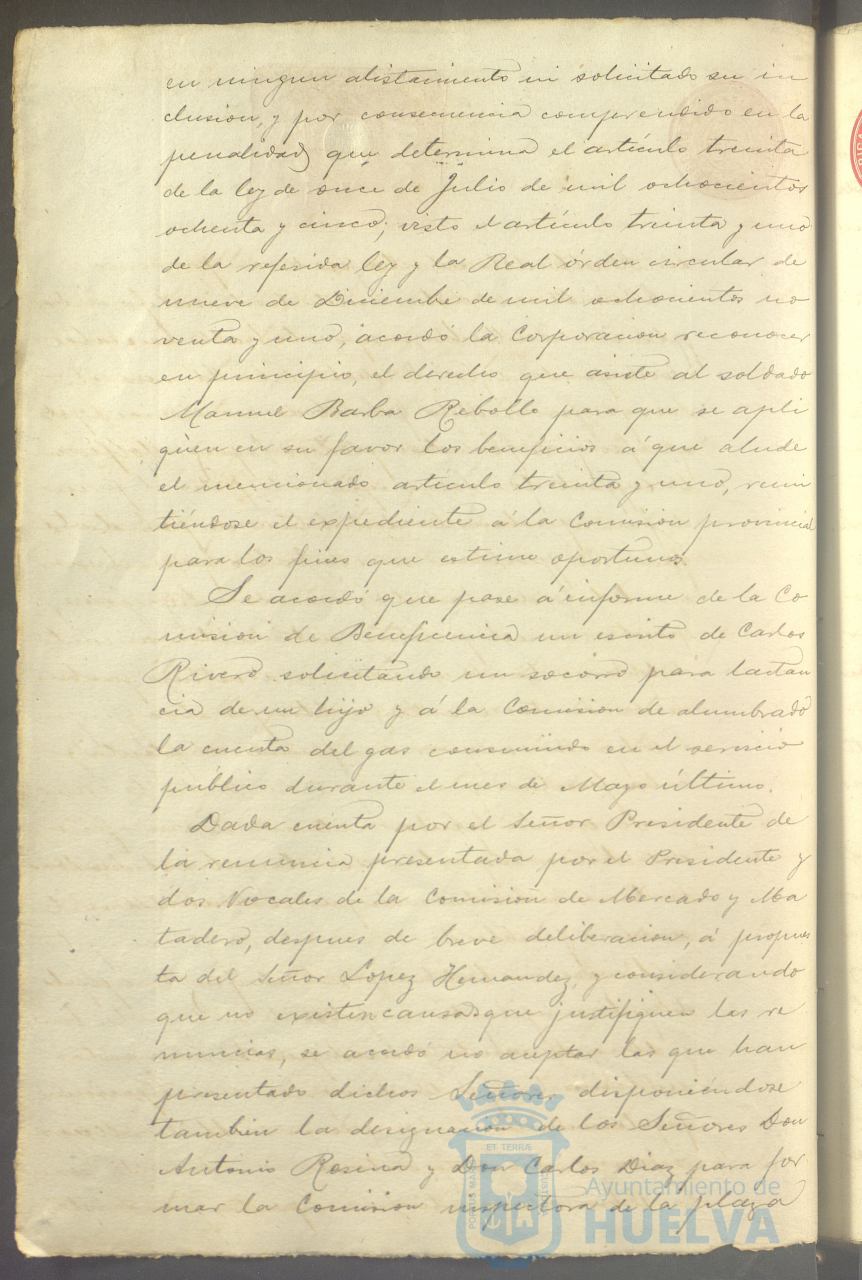 en ningun alistamiento ni solicitado su in
clusion, y por consecuencia comprendido en la
penalidad que determina el artículo treinta
de la ley de once de Julio de mil ochocientos
ochenta y cinco; visto el artículo treinta y uno
de la referida ley y la Real órden circular de
nueve de Diciembre de mil ochocientos no
venta y uno, acordó la Corporacion reconocer
en principio, el derecho que asiste al soldado
Manuel Barba Rebollo para que se apli
qüen en su favor los beneficios á que alude
el mencionado articulo treinta y uno, remi
tiéndose el expediente á la Comision provincial
para los fines que estime oportunos.
Se acordó que pase á informe de la Co
mision de Beneficencia un escrito de Carlos
Rivero solicitando un socorro para lactan
cia de un hijo y á la Comision de alumbrado
la cuenta del gas consumido en el servicio
público durante el mes de Mayo último.
Dada cuenta por el Señor Presidente de
la renuncia presentada por el Presidente y
dos Vocales de la Comision de Mercado y Ma
tadero, despues de breve deliberacion, á propues
ta del Señor Lopez Hernandez, y considerando
que no existen causas que justifiquen las re
nuncias, se acordó no aceptar las que han
presentado dichos Señores disponiéndose
tambien la designacion de los Señores Don
Antonio Resina y Don Carlos Diaz para for
mar la Comision inspectora de la plaza
Ayuntamiento de
HUELVA
ET TERRÆ
PORTUS MARIS
CUSTODIA